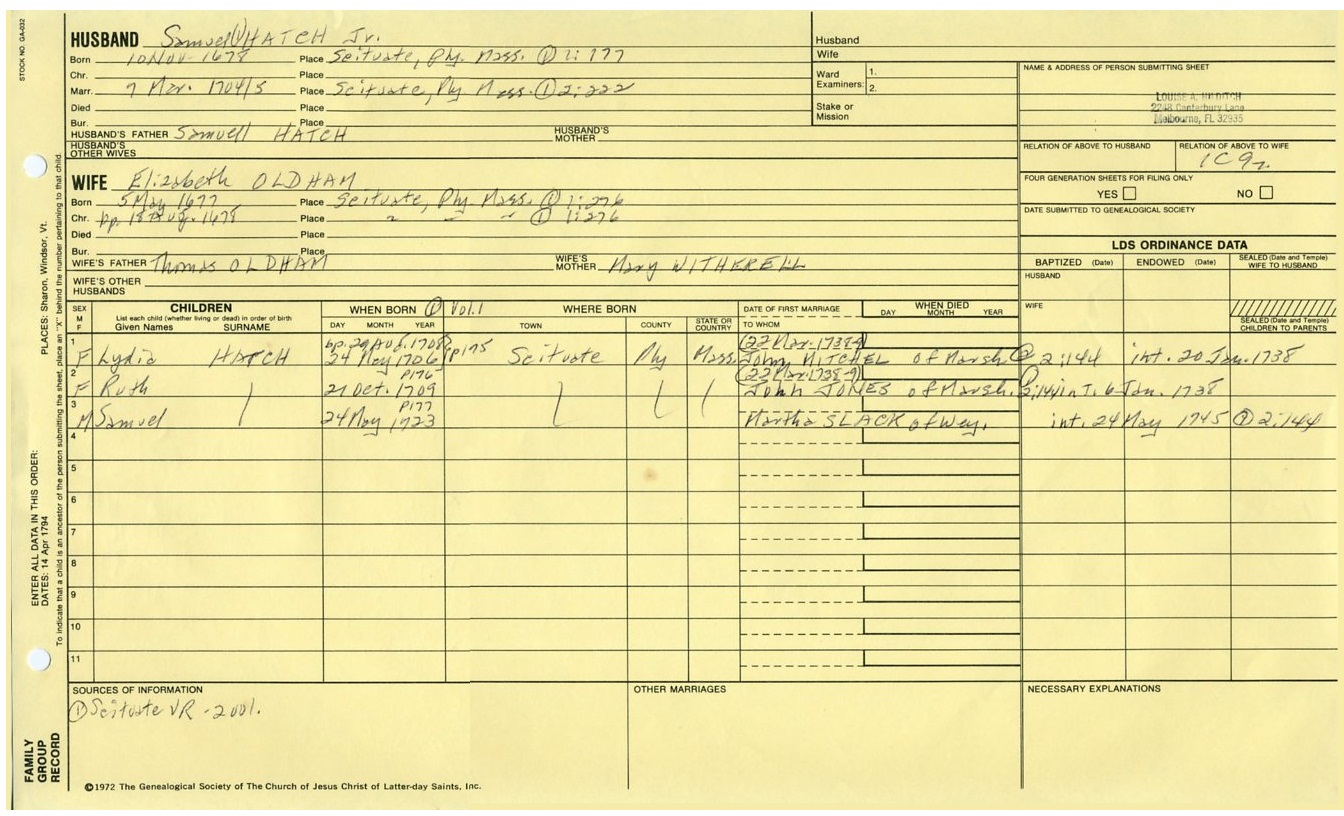 STOCK NO. GA-032
HUSBAND Samuel ① HATCH Jr.
Born 10 Nov. 1678 Place Scituate, Ply. Mass. ① 1:177
Chr. Place
Marr. 7 Mar. 1704/5 Place Scituate, Ply Mass. ① 2:222
Died Place
Bur. Place
HUSBAND'S FATHER Samuell HATCH HUSBAND'S MOTHER
HUSBAND'S OTHER WIVES
WIFE Elizabeth OLDHAM
Born 5 May 1677 Place Scituate, Ply Mass. ① 1:276
Chr. bp. 18 Aug. 1678 Place " " " ① 1:276
Died Place
Bur. Place
WIFE'S FATHER Thomas OLDHAM WIFE'S MOTHER Mary WITHERELL
WIFE'S OTHER HUSBANDS
Husband
Wife
Ward Examiners: 1.
2.
Stake or Mission
NAME & ADDRESS OF PERSON SUBMITTING SHEET
LOUISE A. HILDITCH
2248 Canterbury Lane
Melbourne, FL 32935
RELATION OF ABOVE TO HUSBAND RELATION OF ABOVE TO WIFE
1C9r.
FOUR GENERATION SHEETS FOR FILING ONLY
YES NO
DATE SUBMITTED TO GENEALOGICAL SOCIETY
LDS ORDINANCE DATA
BAPTIZED (Date) ENDOWED (Date) SEALED (Date and Temple) WIFE TO HUSBAND
HUSBAND
WIFE
SEALED (Date and Temple) CHILDREN TO PARENTS
SEX M F CHILDREN WHEN BORN ① Vol.1 WHERE BORN DATE OF FIRST MARRIAGE WHEN DIED
List each child (whether living or dead) in order of birth
Given Names SURNAME DAY MONTH YEAR TOWN COUNTY STATE OR COUNTRY TO WHOM DAY MONTH YEAR
1 bp. 29 Aug. 1708 (22 Mar. 1738-9)
F Lydia HATCH 24 May 1706 p175 Scituate Ply Mass. John MITCHEL of Marsh. ① 2:144 int. 20 Jan. 1738
2 P176 (22 Mar. 1738-9)
F Ruth 21 Oct. 1709 John JONES of Marsh. ① 2:144 int. 6 Jan. 1738
3 P177
M Samuel 24 May 1723 Martha SLACK of Wey. int. 24 May 1745 ① 2:144
4
5
6
7
8
9
10
11
SOURCES OF INFORMATION OTHER MARRIAGES NECESSARY EXPLANATIONS
① Scituate VR - 2 vol.
©1972 The Genealogical Society of The Church of Jesus Christ of Latter-day Saints, Inc.
FAMILY GROUP RECORD
ENTER ALL DATA IN THIS ORDER: PLACES: Sharon, Windsor, Vt.
DATES: 14 Apr 1794
To indicate that a child is an ancestor of the person submitting the sheet, place an "X" behind the number pertaining to that child.